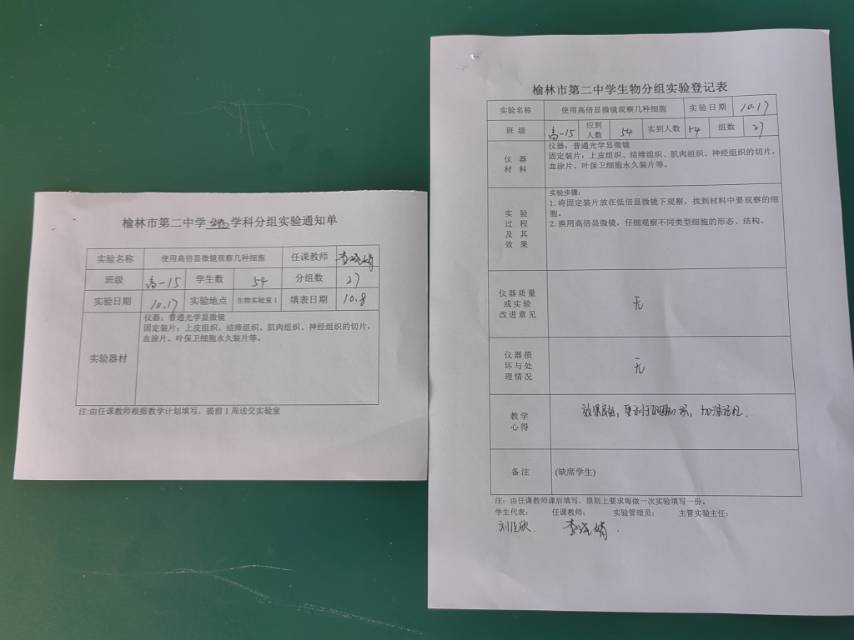 榆林市第二中学 生物 学科分组实验通知单
实验名称 使用高倍显微镜观察几种细胞 任课教师
班级 高一15 学生数 54 分组数 27
实验日期 10.17 实验地点 生物实验室1 填表日期 10.8
实验器材
仪器：普通光学显微镜
固定装片：上皮组织、结缔组织、肌肉组织、神经组织的切片，
血涂片、叶保卫细胞永久装片等。
注:由任课教师根据教学计划填写，提前1周送交实验室
榆林市第二中学生物分组实验登记表
实验名称 使用高倍显微镜观察几种细胞 实验日期 10.17
班级 高一15 应到人数 54 实到人数 54 组数 27
仪器材料
仪器：普通光学显微镜
固定装片：上皮组织、结缔组织、肌肉组织、神经组织的切片，
血涂片、叶保卫细胞永久装片等。
实验过程及其效果
实验步骤：
1.将固定装片放在低倍显微镜下观察，找到材料中要观察的细
胞。
2.换用高倍显微镜，仔细观察不同类型细胞的形态、结构。
仪器质量或实验改进意见 无
仪器损坏与处理情况 无
教学心得 效果良好，
备注 (缺席学生)
注：由任课教师课后填写，原则上要求每做一次实验填写一份。
学生代表： 任课教师： 实验管理员： 主管实验主任：